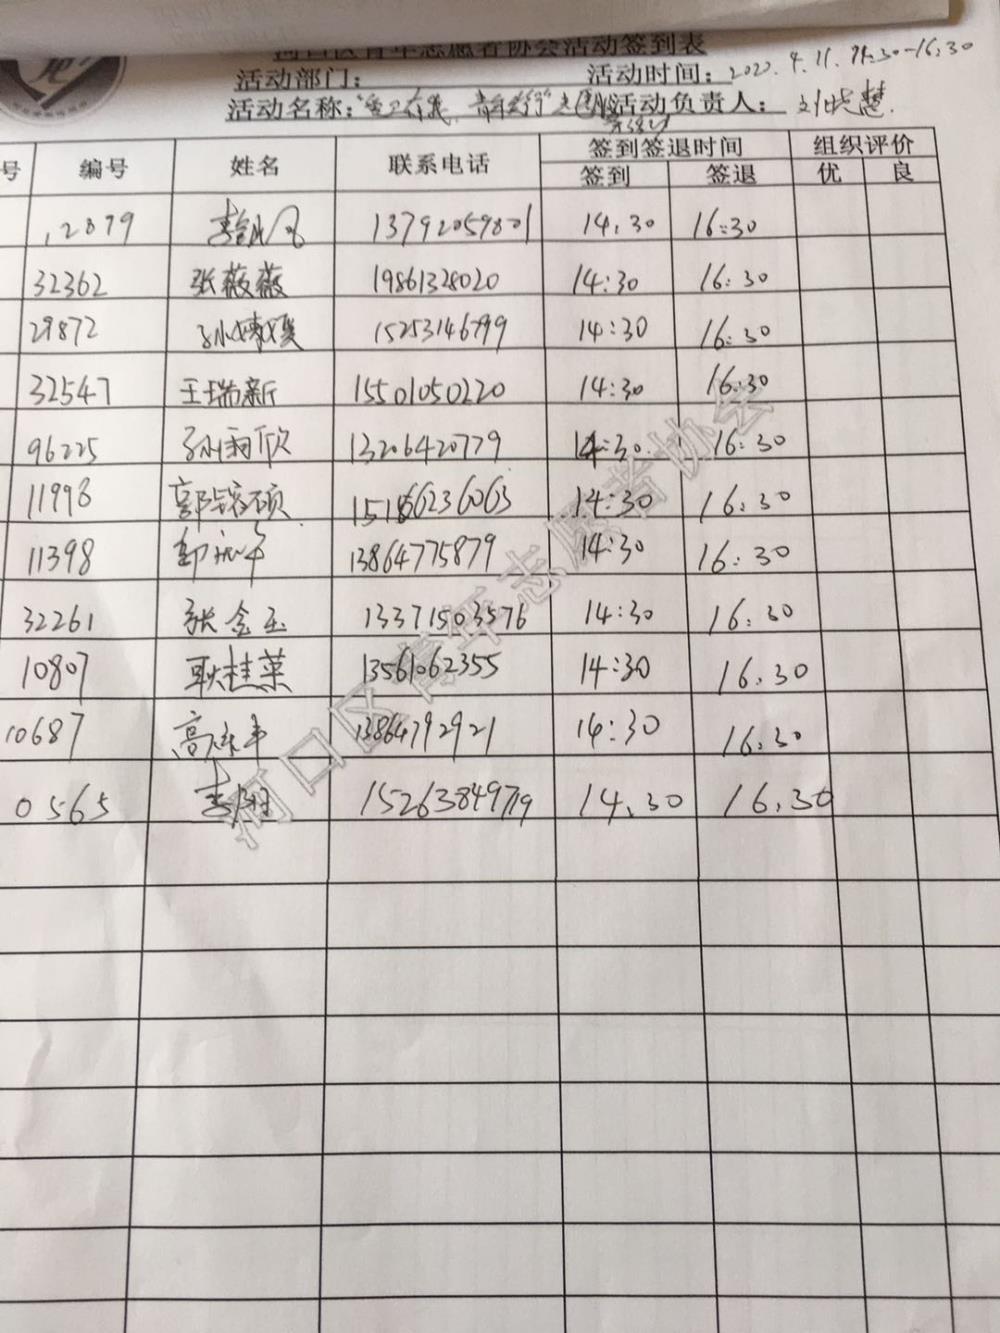 河口区青年志愿者协会活动签到表
活动部门： 活动时间：2022.4.11. 14:30-16:30
活动名称： 活动负责人：刘晓慧
号 编号 姓名 联系电话 签到签退时间 组织评价
签到 签退 优 良
12879 13792059801 14.30 16:30
32362 张薇薇 19861328020 14:30 16:30
29872 15253146799 14:30 16:30
32547 王瑞新 15501050220 14:30 16:30
96225 孙雨欣 13206420779 14:30 16:30
11998 15166236063 14:30 16:30
11398 13864775879 14:30 16:30
32261 张金玉 13371503576 14:30 16:30
10807 耿桂菜 13561062355 14:30 16:30
10687 13864792921 14:30 16:30
0565 15263849719 14.30 16.30
河口区青年志愿者协会